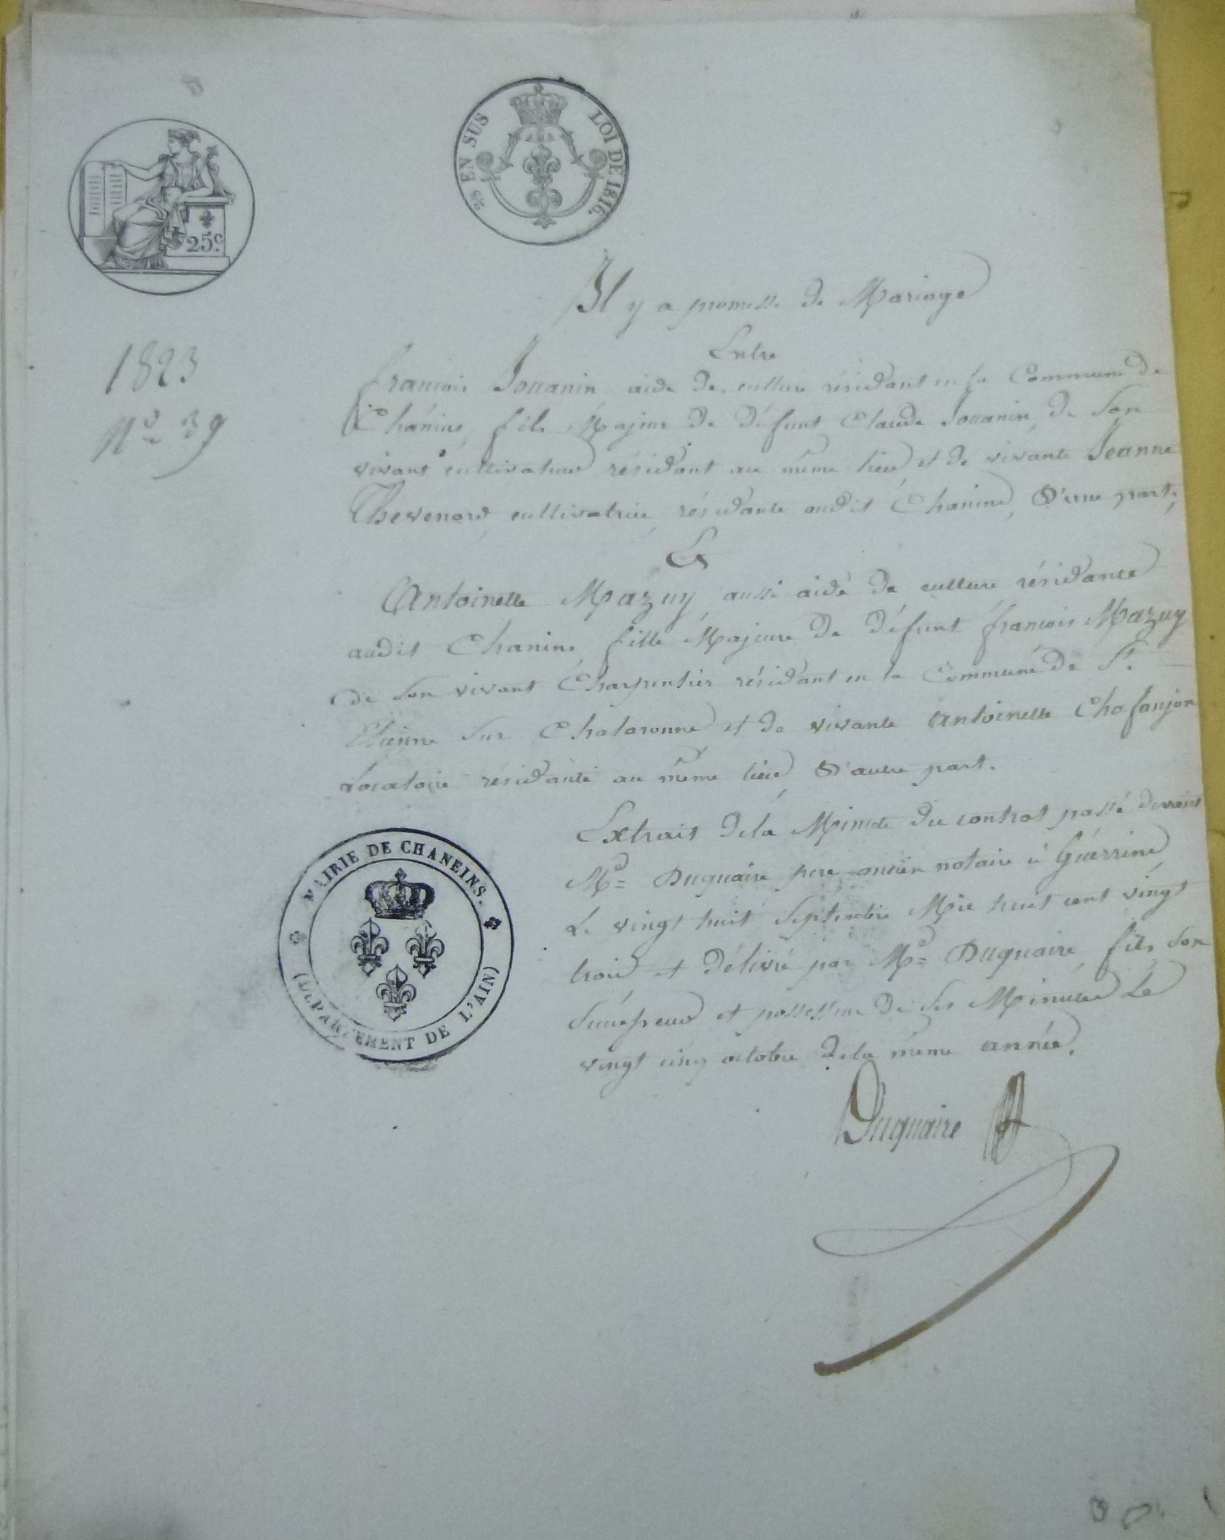 25c
2/5 EN SUS LOI DE 1816.
1823
No 39
Il y a promesse de Mariage
Entre
françois Jouanin aide de culture résidant en la Commune de
Chânins, fils Majeur de défunt Claude Jouanin, de Son
vivant cultivateur résidant au même lieu et de vivante Jeanne
Thevenard, cultivatrice, résidante audit Chanins, D'une part;
Et
Antoinette Mazuy, aussi aide de culture résidante
audit Chanins fille Majeure de défunt françois Mazuy
de Son vivant Charpentier résidant en la Commune de St.
Etienne Sur Chalaronne et de vivante Antoinette Chafanjon
Locatoire résidante au même lieu, D'autre part.
Extrait dela Minute du contrat passé devant
Me Duquaire pere ancien notaire à Guérrine
Le vingt huit Septembre Mil huit cent vingt
trois et délivré par Me Duquaire fils Son
Succésseur et possesseur de Ses Minutes Le
vingt cinq octobre dela même année.
Duquaire
MAIRIE DE CHANEINS.
(DEPARTEMENT DE L'AIN)